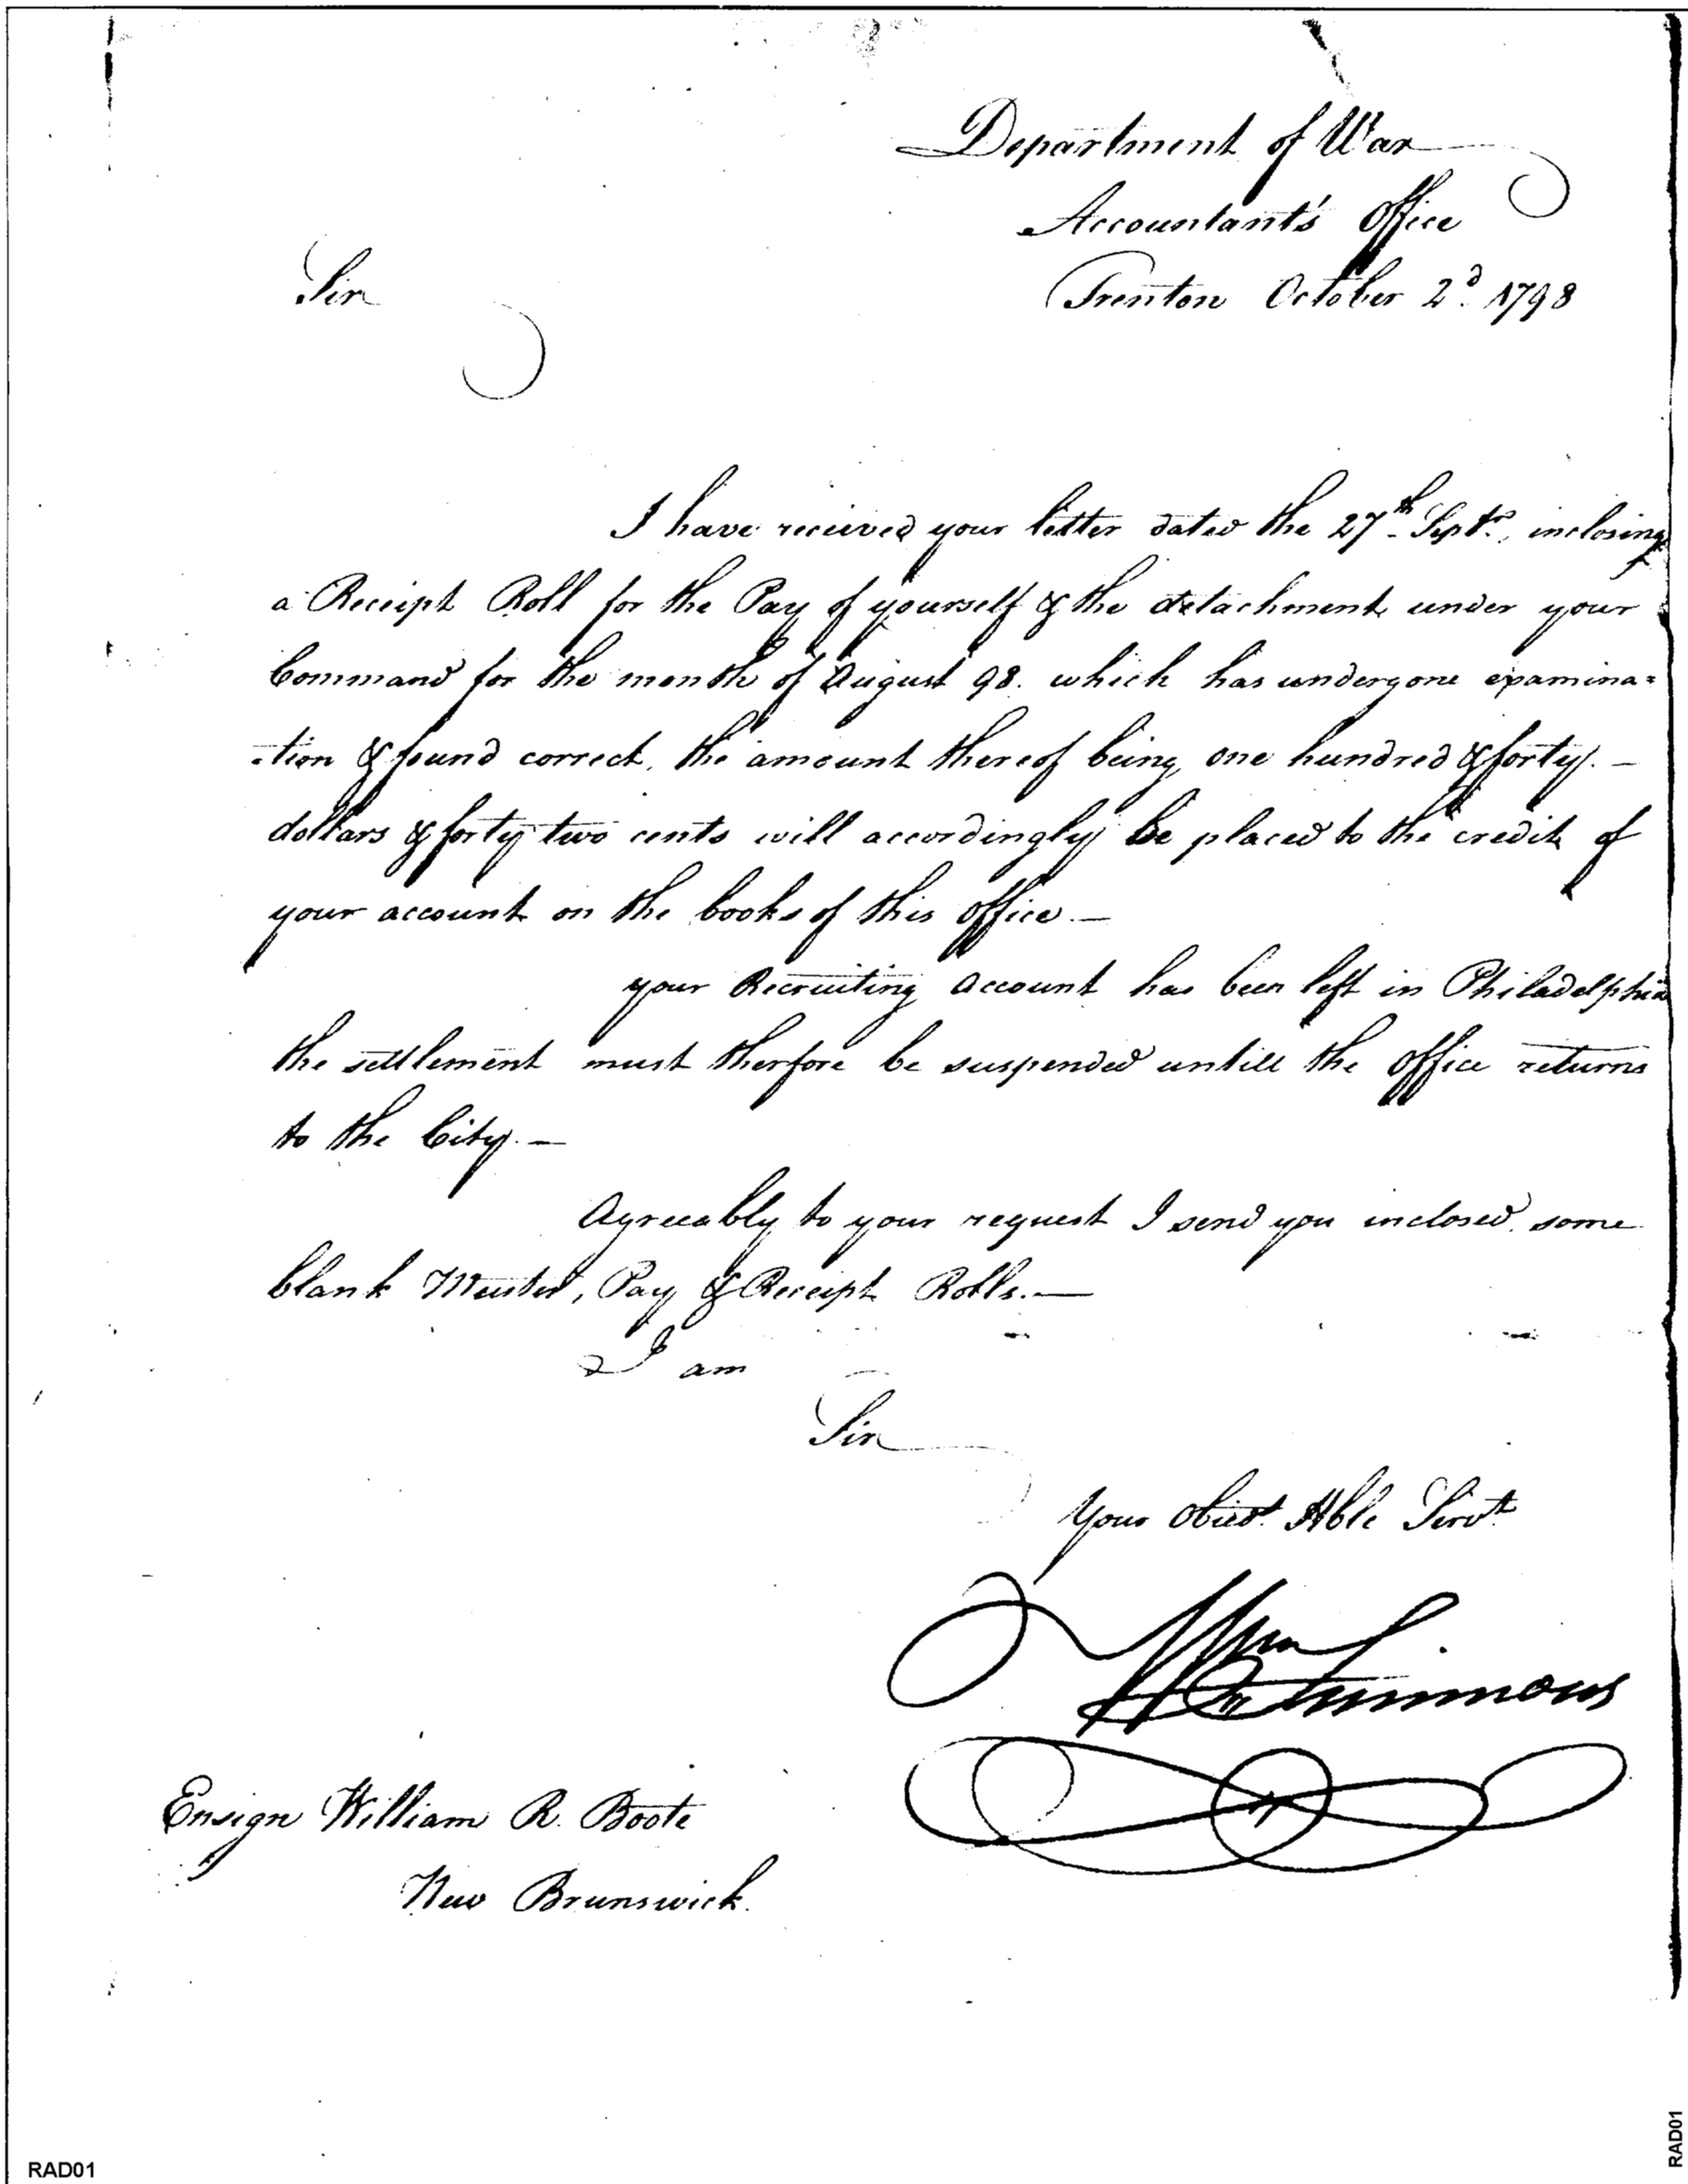 Department of War
Accountant's Office
Sir
Trenton October 2d. 1798
I have recieved your letter dated the 27th Septr. inclosing
a Receipt Roll for the Pay of yourself & the detachment under your
Command for the month of August 98. which has undergone examina=
=tion & found correct, the amount thereof being one hundred & forty. —
dollars & forty two cents will accordingly be placed to the credit of
your account on the books of this office. —
your Recruiting Account has been left in Philadelphia
the settlement must therfore be suspended untill the office returns
to the City. —
Agreeably to your request I send you inclosed, some
blank Muster, Pay & Receipt Rolls. —
I am
Sir
Your Obedt. Hble Servt.
Wm Simmons
Ensign William R. Boote
New Brunswick.
RAD01
RAD01